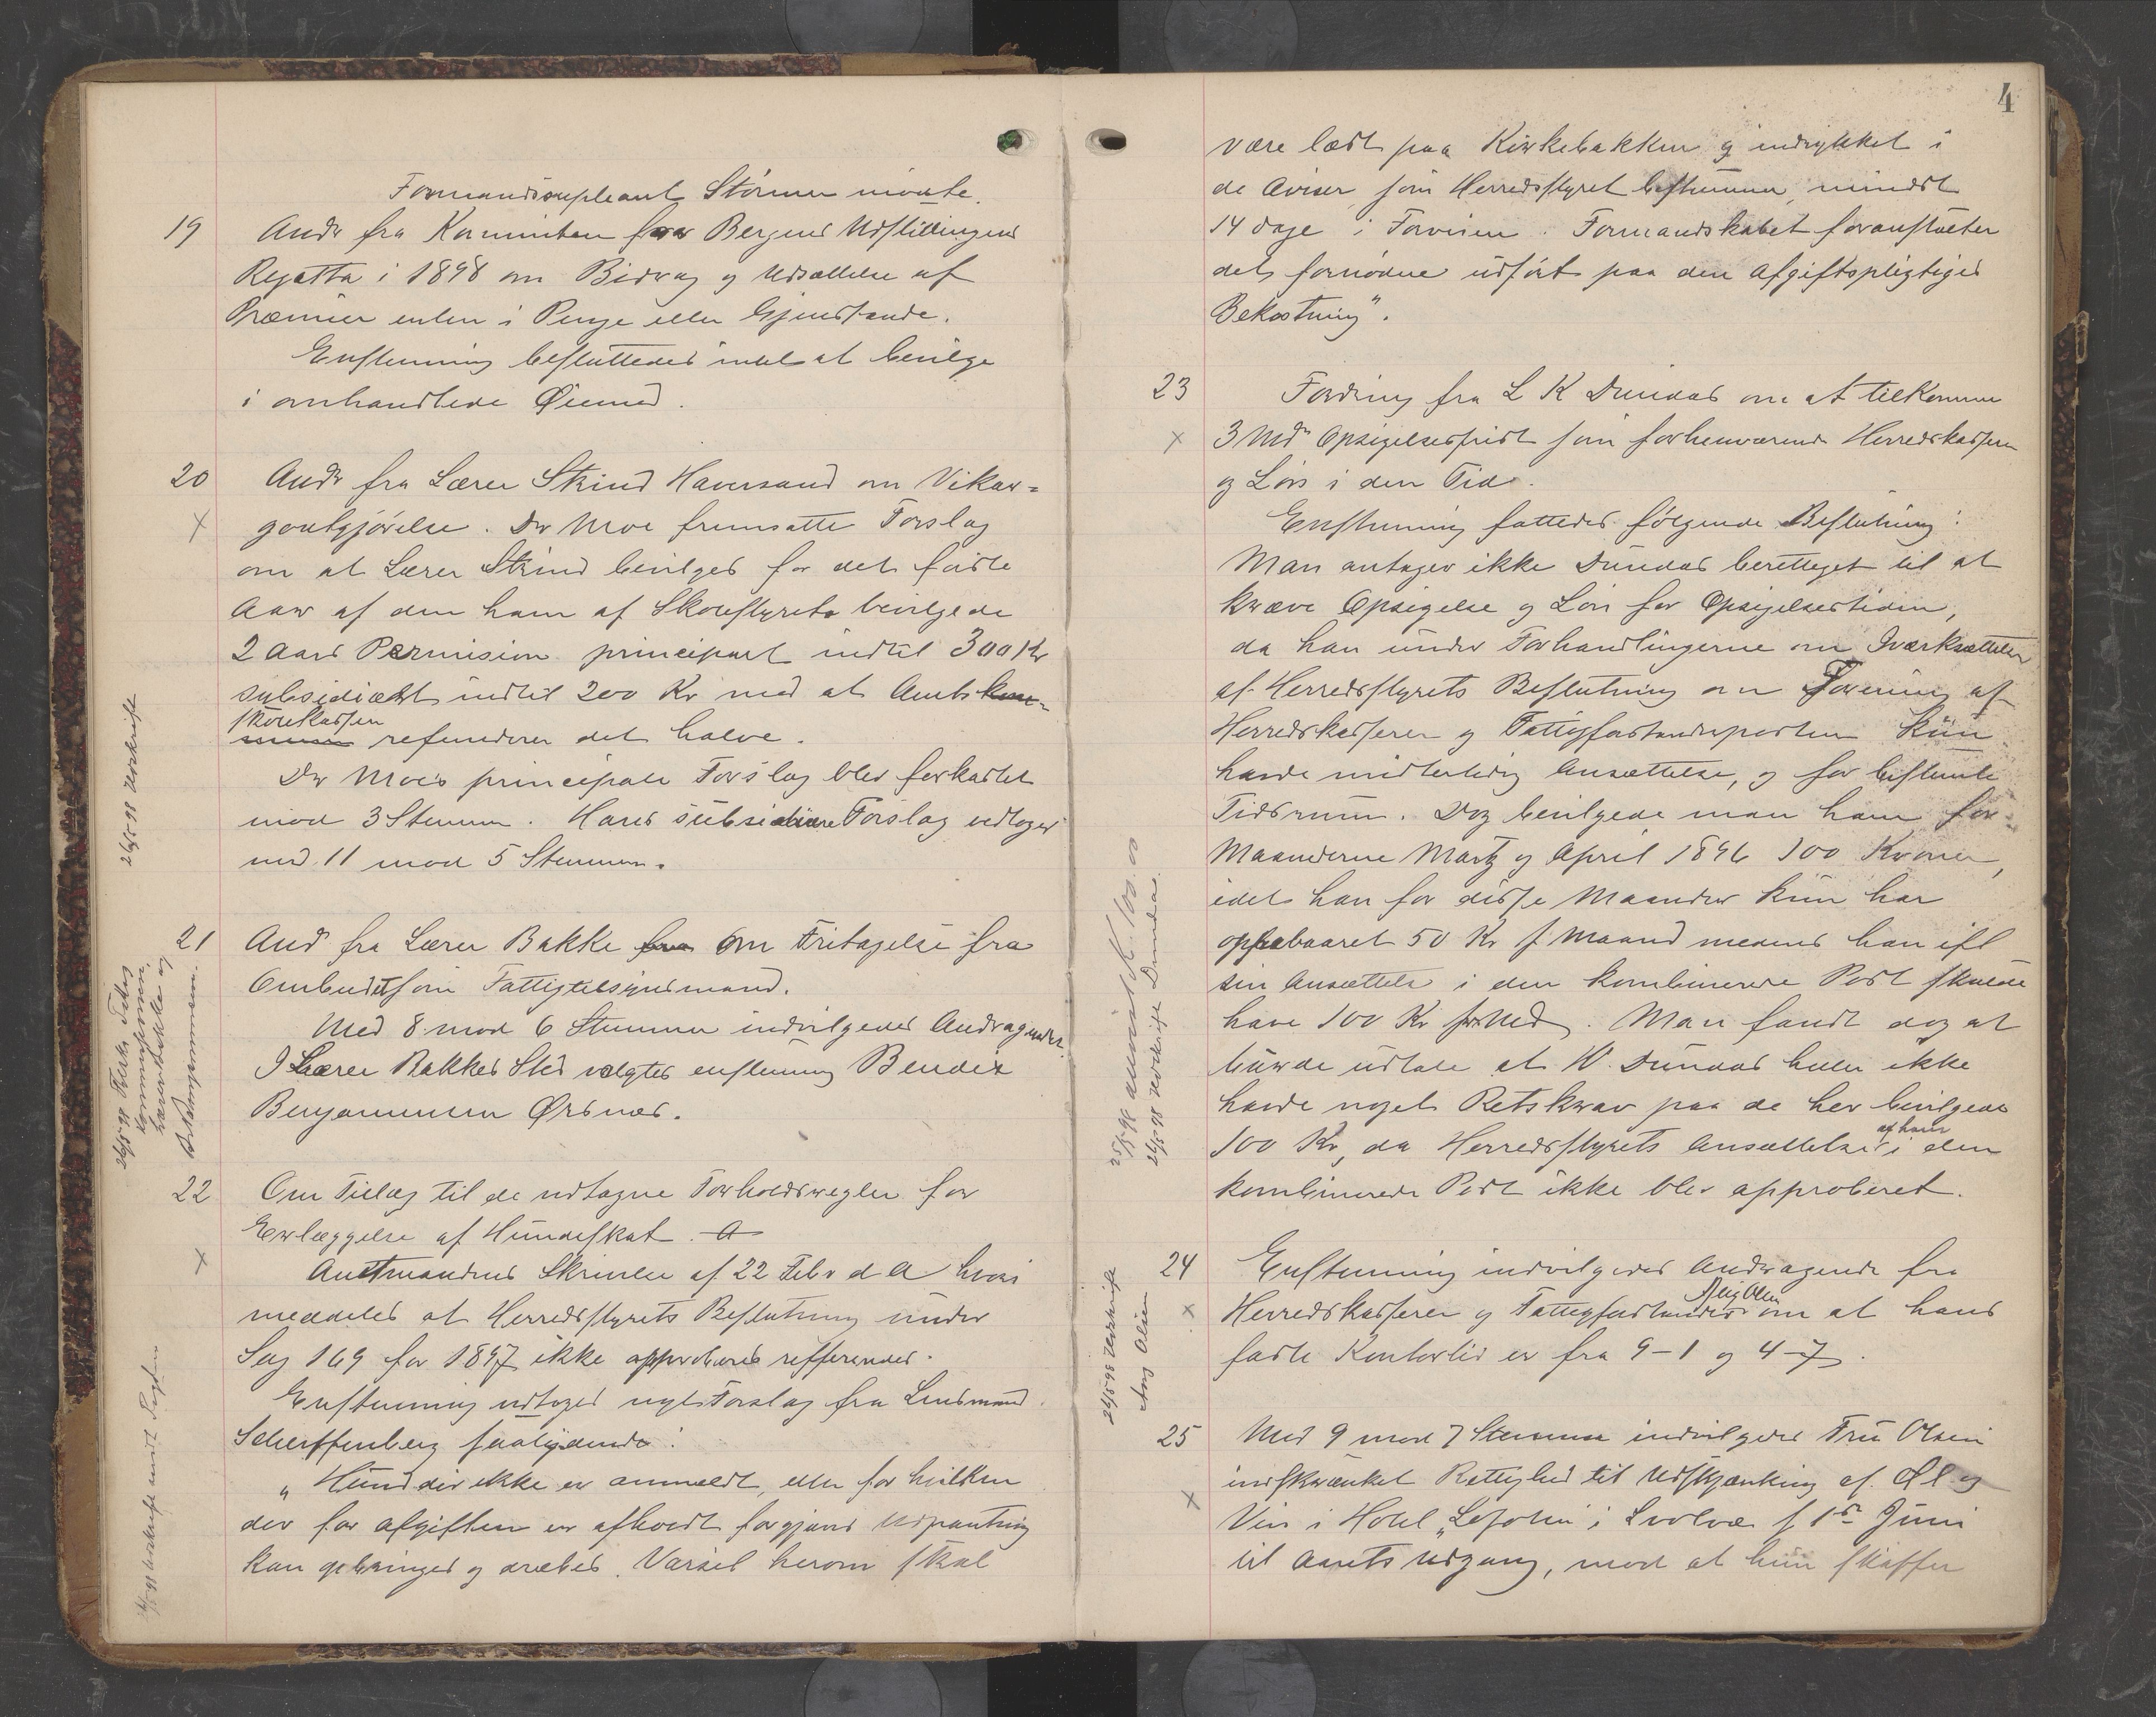 Formandssupleant Störmer mödte.
19 Andr fra Kommiteen for Bergens Udstillingens
Regatta i 1898 om Bidrag og Udsættelse af
Præmier enten i Penge eller Gjenstande.
Enstemmig besluttedes intet at bevilge
i omhandlede Øiemed.
20 Andr fra Lærer Strind Haversand om Vikar=
godtgjörelse. Dr Moe fremsatte Forslag
om at Lærer Strind bevilges for det förste
Aar af den ham af Skolestyret bevilgede
2 Aars Permision principart indtil 300 Kr
subsidiært indtil 200 Kr med at Amts
skolekassen refunderer det halve.
Dr Moe's principale Forslag blev forkastet
mod 3 Stemmer. Hans subsidiære Forslag vedtoges
med 11 mod 5 Stemmer.
26/5 98 Udskrift
21 And fra Lærer Bakke fra om Fritagelse fra
Ombudet som Fattigtilsynsmand.
Med 8 mod 6 Stemmer indvilgedes Andragendet.
I Lærer Bakkes Sted valgtes enstemmig Bendix
Benjaminsen Ørsnes.
26/5 98
Lærer Bakke og
B. Benjaminsen.
22 Om Tillæg til de vedtagne Forholdsregler for
Erlæggelse af Hundeskat. A
Amtmandens Skrivelse af 22 Febr d A hvori
meddeles at Herredsstyrets Beslutning under
Sag 169 for 1897 ikke approberes refferendes.
Enstemmig vedtoges nyt Forslag fra Lensmand
Scherffenberg saalydende:
"Hund der ikke er anmeldt, eller for hvilken
der for Afgiften er afholdt forgjæves Udpantning
kan optringes og dræbes. Varsel herom skal
4
være læst paa Kirkebakken og indrykket i
de Aviser, som Herredsstyret bestemmer, mindst
14 dage i Forveien. Formandskabet foranstalter
det fornödne udfört paa den Afgiftspligtiges
Bekostning".
23 Fordring fra L K Dundas om at tilkomme
3 Mdr Opsigelsesfrist som forhenværende Herredskasserer
og Lön i den Tid.
Enstemmig fattedes fölgende Beslutning:
Man antager ikke Dundas berettiget til at
kræve Opsigelse og Lön for Opsigelsestiden,
da han under Forhandlingerne om Iværksættelse
af Herredsstyrets Beslutning om Forening af
Herredskasserer og Fattigforstanderposten kun
havde midlertidig Ansættelse, og for bestemte
Tidsrum. Dog bevilgede man ham for
Maanederne Marts og April 1896 100 Kroner,
idet han for disse Maaneder kun har
oppebaaret 50 Kr p Maaned medens han ifl
sin Ansættelse i den kombinerede Post skulde
have 100 Kr pr Md. Man fandt dog at
burde udtale at Dundas heller ikke
havde noget Retskrav paa de her bevilgede
100 Kr, da Herredsstyrets Ansættelse af ham i den
kombinerede Post ikke blev approberet.
26/5 98 Udskrift Dundas.
24 Enstemmig indvilgedes Andragende fra
Herredskasserer og Fattigforstander Olsen om at hans
faste Kontortid er fra 9-1 og 4-7.
26/5 98 Udskrift
Olsen
25 Med 9 mod 7 Stemmer indvilgedes Fru Olsen
indskrænket Rettighed til Udskjænking af Øl og
Vin i Hotel "Lofoten" i Svolvær f 1ste Juni
til Aarets Udgang, mod at hun skaffer